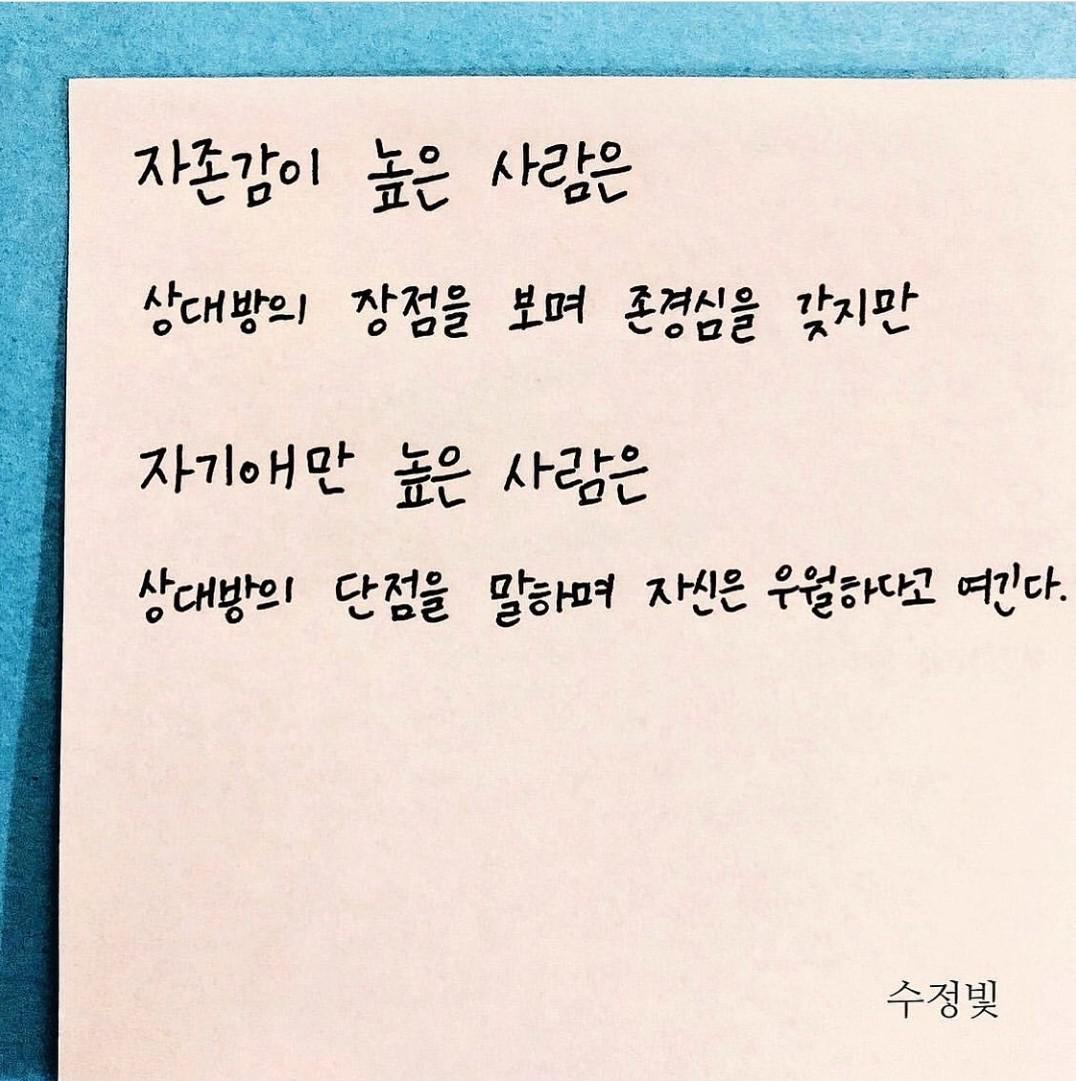 자존감이 높은 사람은
상대방의 장점을 보며 존경심을 갖지만
자기애만 높은 사람은
상대방의 단점을 말하며 자신은 우월하다고 여긴다.
수정빛